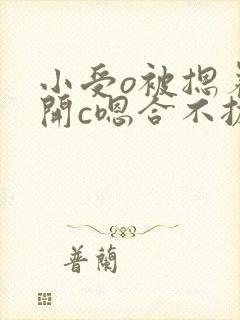 小受o被摁着
開c嗯合不拢
普蘭